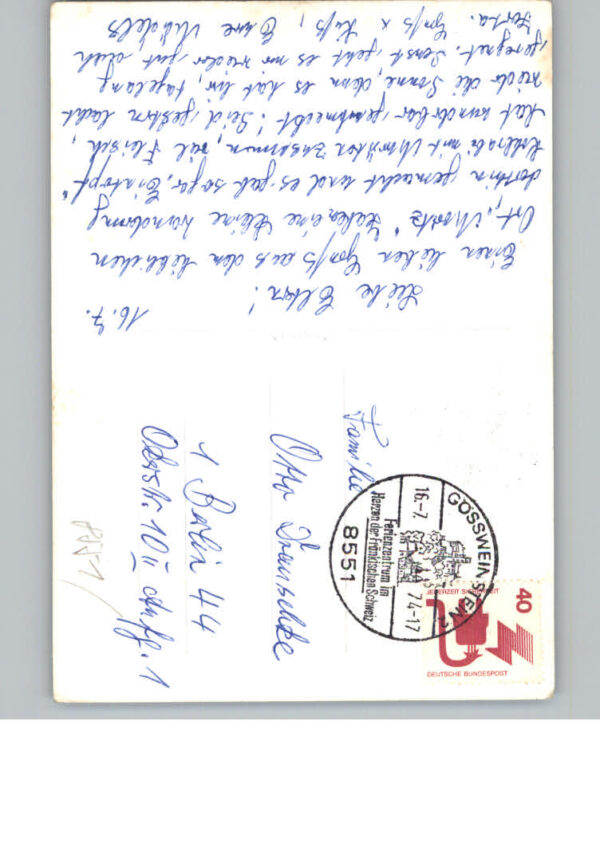 16.7.
Liebe Eltern!
Einen lieben Gruß aus dem lieblichen
Ort „ Habe eine kleine Wanderung
dorthin gemacht und es gab sogar „Eintopf“
Kohlrabi mit Mohrrüben zusammen, viel Fleisch,
hat wunderbar geschmeckt! Seid gestern lacht
wieder die Sonne, denn es hat hier tagelang
geregnet. Sonst geht es mir wieder gut auch
Gruß u. Kuß, Eure
Familie
Otto
1 Berlin 44
Oderstr. 10 II Aufg. 1
GÖSSWEINSTEIN 2
16.-7. 74-17
Ferienzentrum im
Herzen der Fränkischen Schweiz
8551
40
JEDERZEIT SICHERHEIT
DEUTSCHE BUNDESPOST